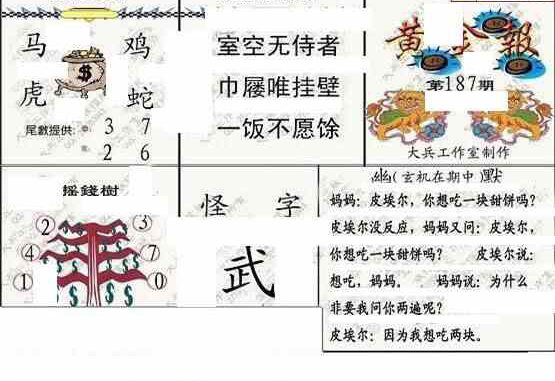 马 鸡
虎 蛇
尾數提供: 3 7
2 6
室空无侍者
巾屦唯挂壁
一饭不愿馀
黄金報
第187期
大兵工作室制作
摇錢樹
2 3
4 7
1 0
怪 字
武
幽(玄机在期中)默
妈妈：皮埃尔，你想吃一块甜饼吗？
皮埃尔没反应，妈妈又问：皮埃尔，
你想吃一块甜饼吗？ 皮埃尔说：
想吃，妈妈。 妈妈说：为什么
非要我问你两遍呢？
皮埃尔：因为我想吃两块。